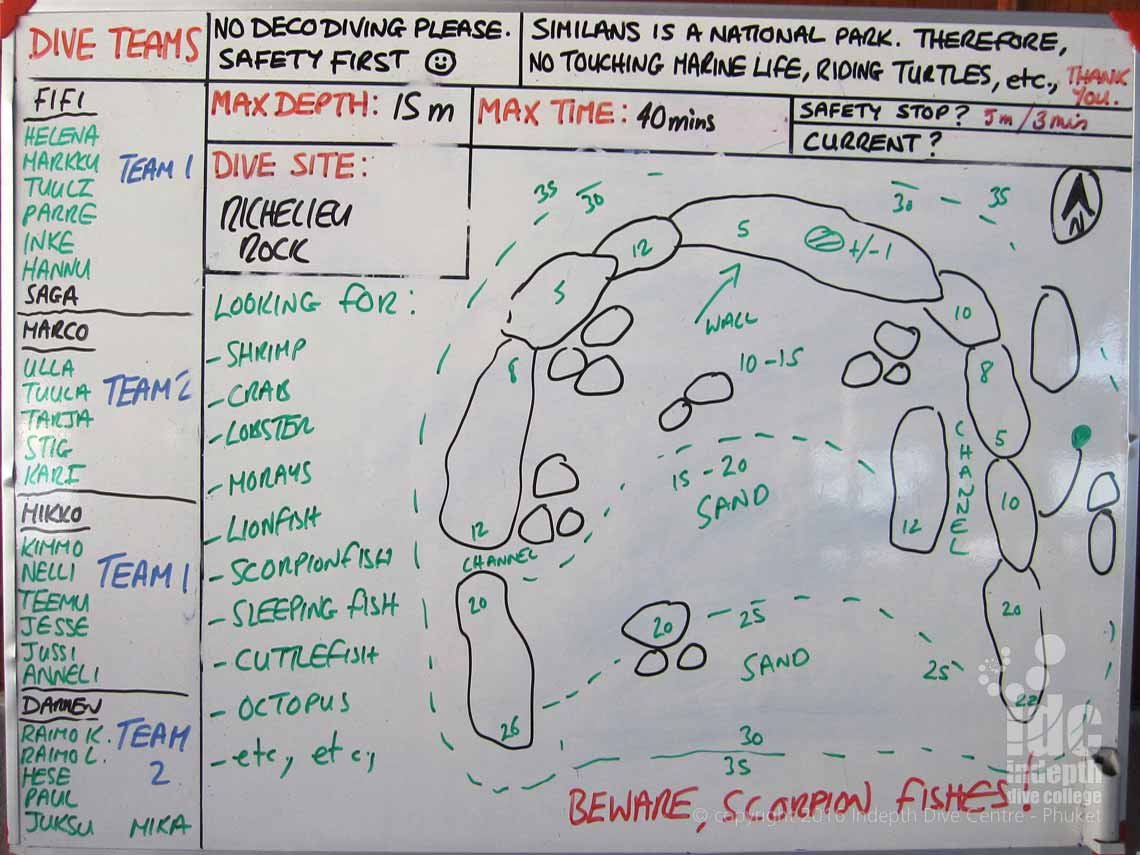 DIVE TEAMS
NO DECO DIVING PLEASE.
SAFETY FIRST
SIMILANS IS A NATIONAL PARK. THEREFORE,
NO TOUCHING MARINE LIFE, RIDING TURTLES, etc., THANK
YOU.
MAX DEPTH: 15m
MAX TIME: 40mins
SAFETY STOP? 5m/3min
CURRENT?
FIFI
HELENA
MARKKU
TEAM 1
TUULI
PARRE
INKE
HANNU
SAGA
MARCO
ULLA
TUULA
TEAM 2
TARJA
STIG
KARI
MIKKO
KIMMO
NELLI
TEAM 1
TEEMU
JESSE
JUSSI
ANNELI
DARREN
RAIMO K.
TEAM
RAIMO L.
HESE
2
PAUL
JUKSU MIKA
DIVE SITE:
RICHELIEU
ROCK
LOOKING FOR:
- SHRIMP
- CRAB
- LOBSTER
- MORAYS
- LIONFISH
- SCORPIONFISH
- SLEEPING FISH
- CUTTLEFISH
- OCTOPUS
- etc, etc,
35
30
30
35
N
12
5
+/-1
5
10
WALL
10-15
8
8
5
15-20
SAND
CHANNEL
10
12
12
CHANNEL
20
20
25
20
SAND
25
22
26
30
35
BEWARE, SCORPION FISHES!
idc
indepth
dive college
© copyright 2016 Indepth Dive Centre - Phuket